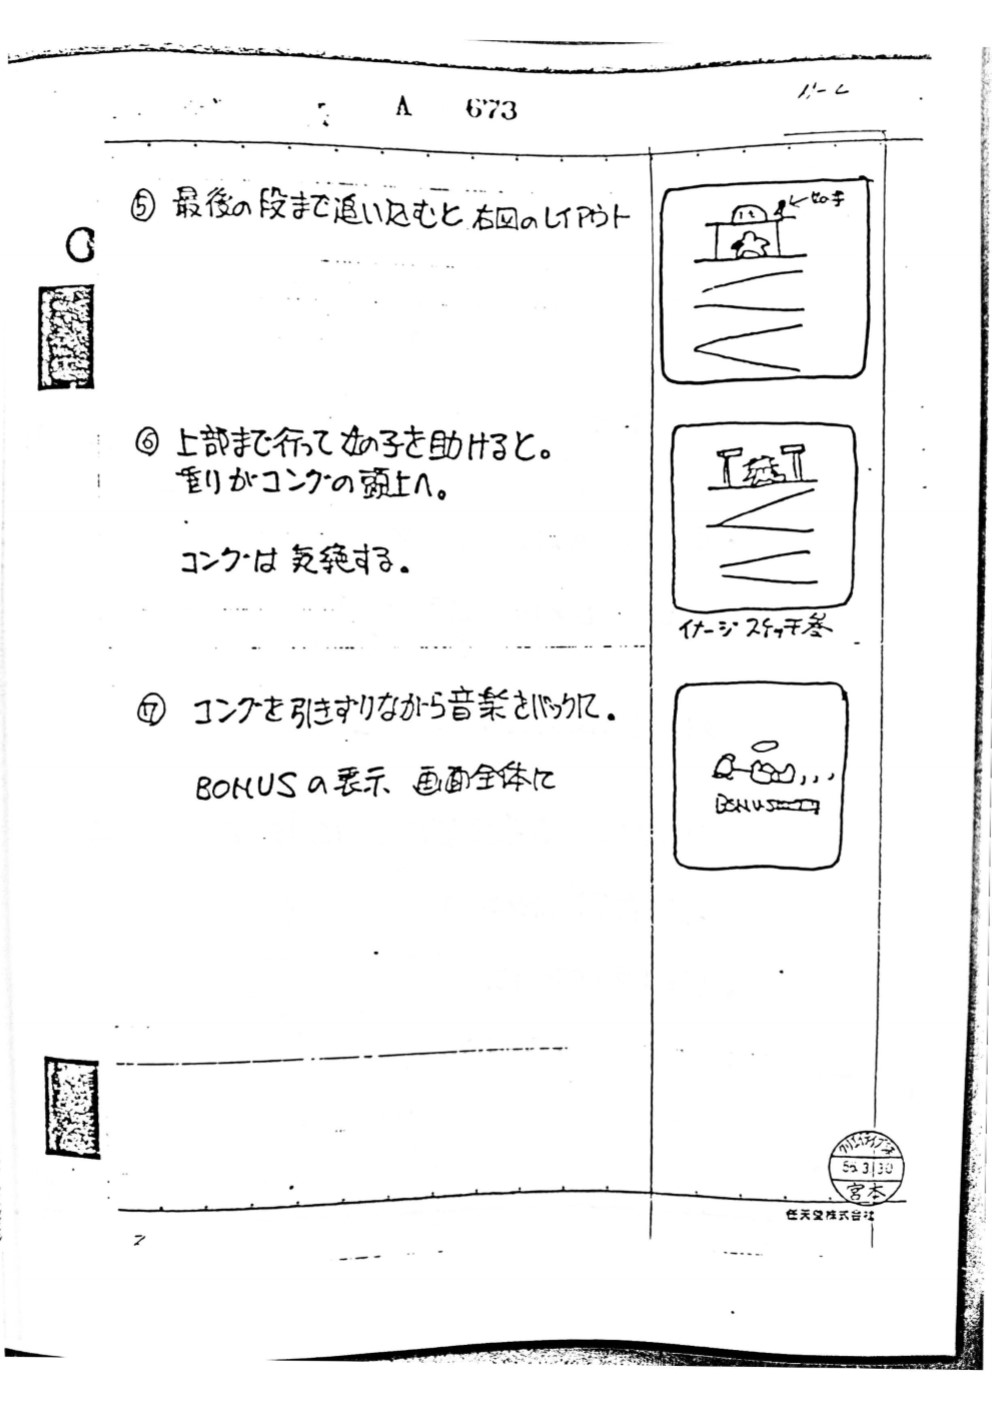 A 673
⑤ 最後の段まで追い込むと 右図のレイアウト
女の子
⑥ 上部まで行って女の子を助けると。
重りがコングの頭上へ。
コングは 気絶する。
イメージスケッチ参
⑦ コングを引きずりながら音楽をバックに。
BONUSの表示 画面全体に
BONUS
クリエイティブ課
56 3 30
宮本
任天堂株式会社
7